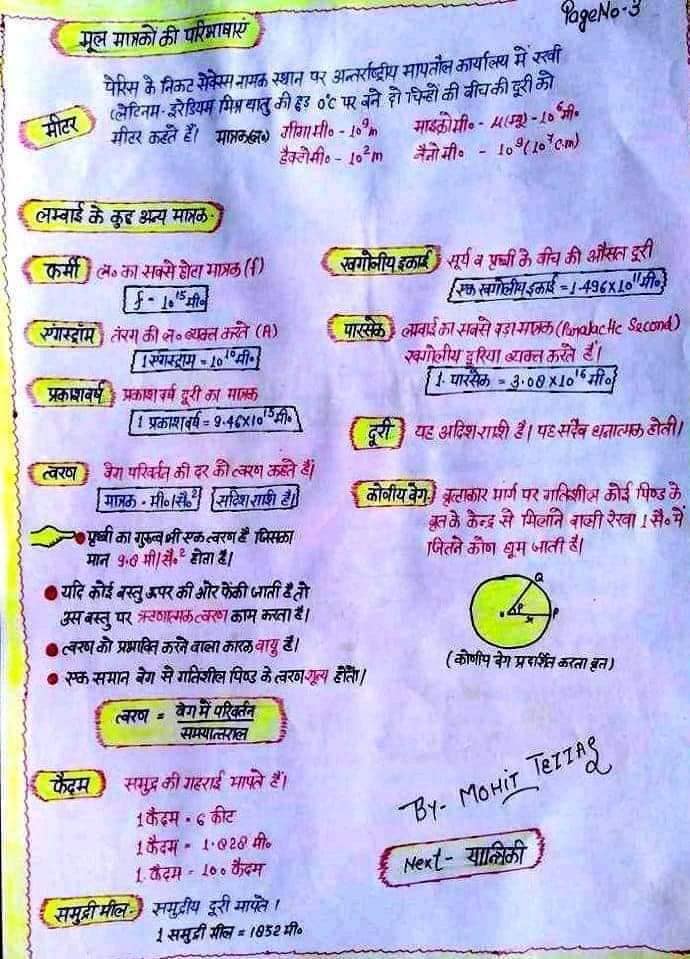 Page No-3
मूल मात्रकों की परिभाषाएं
पेरिस के निकट सेवेस नामक स्थान पर अन्तर्राष्ट्रीय मापतौल कार्यालय में रखी
प्लेटिनम-इरेडियम मिश्र धातु की छड़ 0°C पर बने दो चिन्हों की बीच की दूरी को
मीटर
मीटर कहते हैं। मात्रक(ल०)
गीगा मी० - 10⁹m
माइक्रो मी० - μ(म्यू) - 10⁶ मी०
हैक्टोमी० - 10²m
नैनो मी० - 10⁹(10⁷c.m)
लम्बाई के कुछ अन्य मात्रक-
फर्मी
ल० का सबसे छोटा मात्रक (f)
f = 10¹⁵ मी०
खगोलीय इकाई
सूर्य व पृथ्वी के बीच की औसत दूरी
एक खगोलीय इकाई = 1.496×10¹¹ मी०
एंगस्ट्रॉम
तंरग की ल० व्यक्त करते (A)
1 एंगस्ट्रॉम = 10¹⁰ मी०
पारसेक
लम्बाई का सबसे बड़ा मात्रक (Second)
खगोलीय दूरिया व्यक्त करते हैं।
1. पारसेक = 3.08×10¹⁶ मी०
प्रकाशवर्ष
प्रकाश वर्ष दूरी का मात्रक
1 प्रकाशवर्ष = 9.46×10¹⁵ मी०
दूरी
यह अदिश राशी है। यह सदैव धनात्मक होती।
त्वरण
वेग परिवर्तन की दर को त्वरण कहते हैं।
मात्रक - मी०/सै०² सदिश राशी है।
कोणीय वेग
वृत्ताकार मार्ग पर गतिशील कोई पिण्ड के
वृत के केन्द्र से मिलाने वाली रेखा 1 सै० में
जितने कोण घूम जाती है।
Q
P
(कोणीय वेग प्रदर्शित करता वृत)
पृथ्वी का गुरुत्व भी एक त्वरण है जिसका
मान 9.8 मी/सै०² होता है।
यदि कोई वस्तु ऊपर की ओर फेंकी जाती है तो
उस वस्तु पर ऋणात्मक त्वरण काम करता है।
त्वरण को प्रभावित करने वाला कारक वायु है।
एक समान वेग से गतिशील पिण्ड के त्वरण शून्य होता।
त्वरण = वेग में परिवर्तन
समयान्तराल
फैदम
समुद्र की गहराई मापते हैं।
1 फैदम = 6 फीट
1 फैदम = 1.828 मी०
1. फैदम = 100 फैदम
By- MOHIT
Next- यान्त्रिकी
समुद्री मील-
समुद्रीय दूरी मापते।
1 समुद्री मील = 1852 मी०